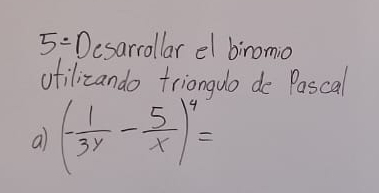 5=Desarrollar el binomio
utilizando triangulo de Pascal
a) (-1/3y - 5/x)^4 =